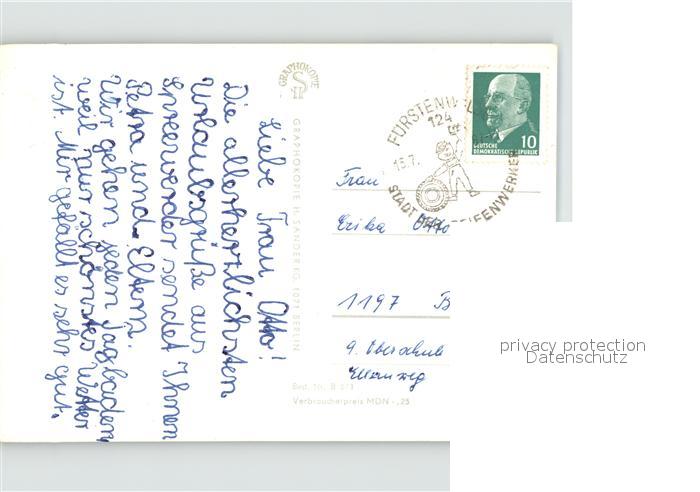 Liebe Frau Otto!
Die allerherzlichsten
Urlaubsgrüße aus
sendet Ihnen
Petra und Eltern.
Wir gehen jeden Tag baden,
weil nur schönster Wetter
ist. Mir gefällt es sehr gut.
GRAPHOKOPIE
GRAPHOKOPIE H. SANDER KG, 1071 BERLIN
FÜRSTENW
124
15.7.
STADT DER REIFENWERKE
10
DEUTSCHE
DEMOKRATISCHE REPUBLIK
Frau
Erika Otto
1197 B
9. Oberschule
Ellernweg
Best. Nr. B
Verbraucherpreis MDN -,25
privacy protection
Datenschutz